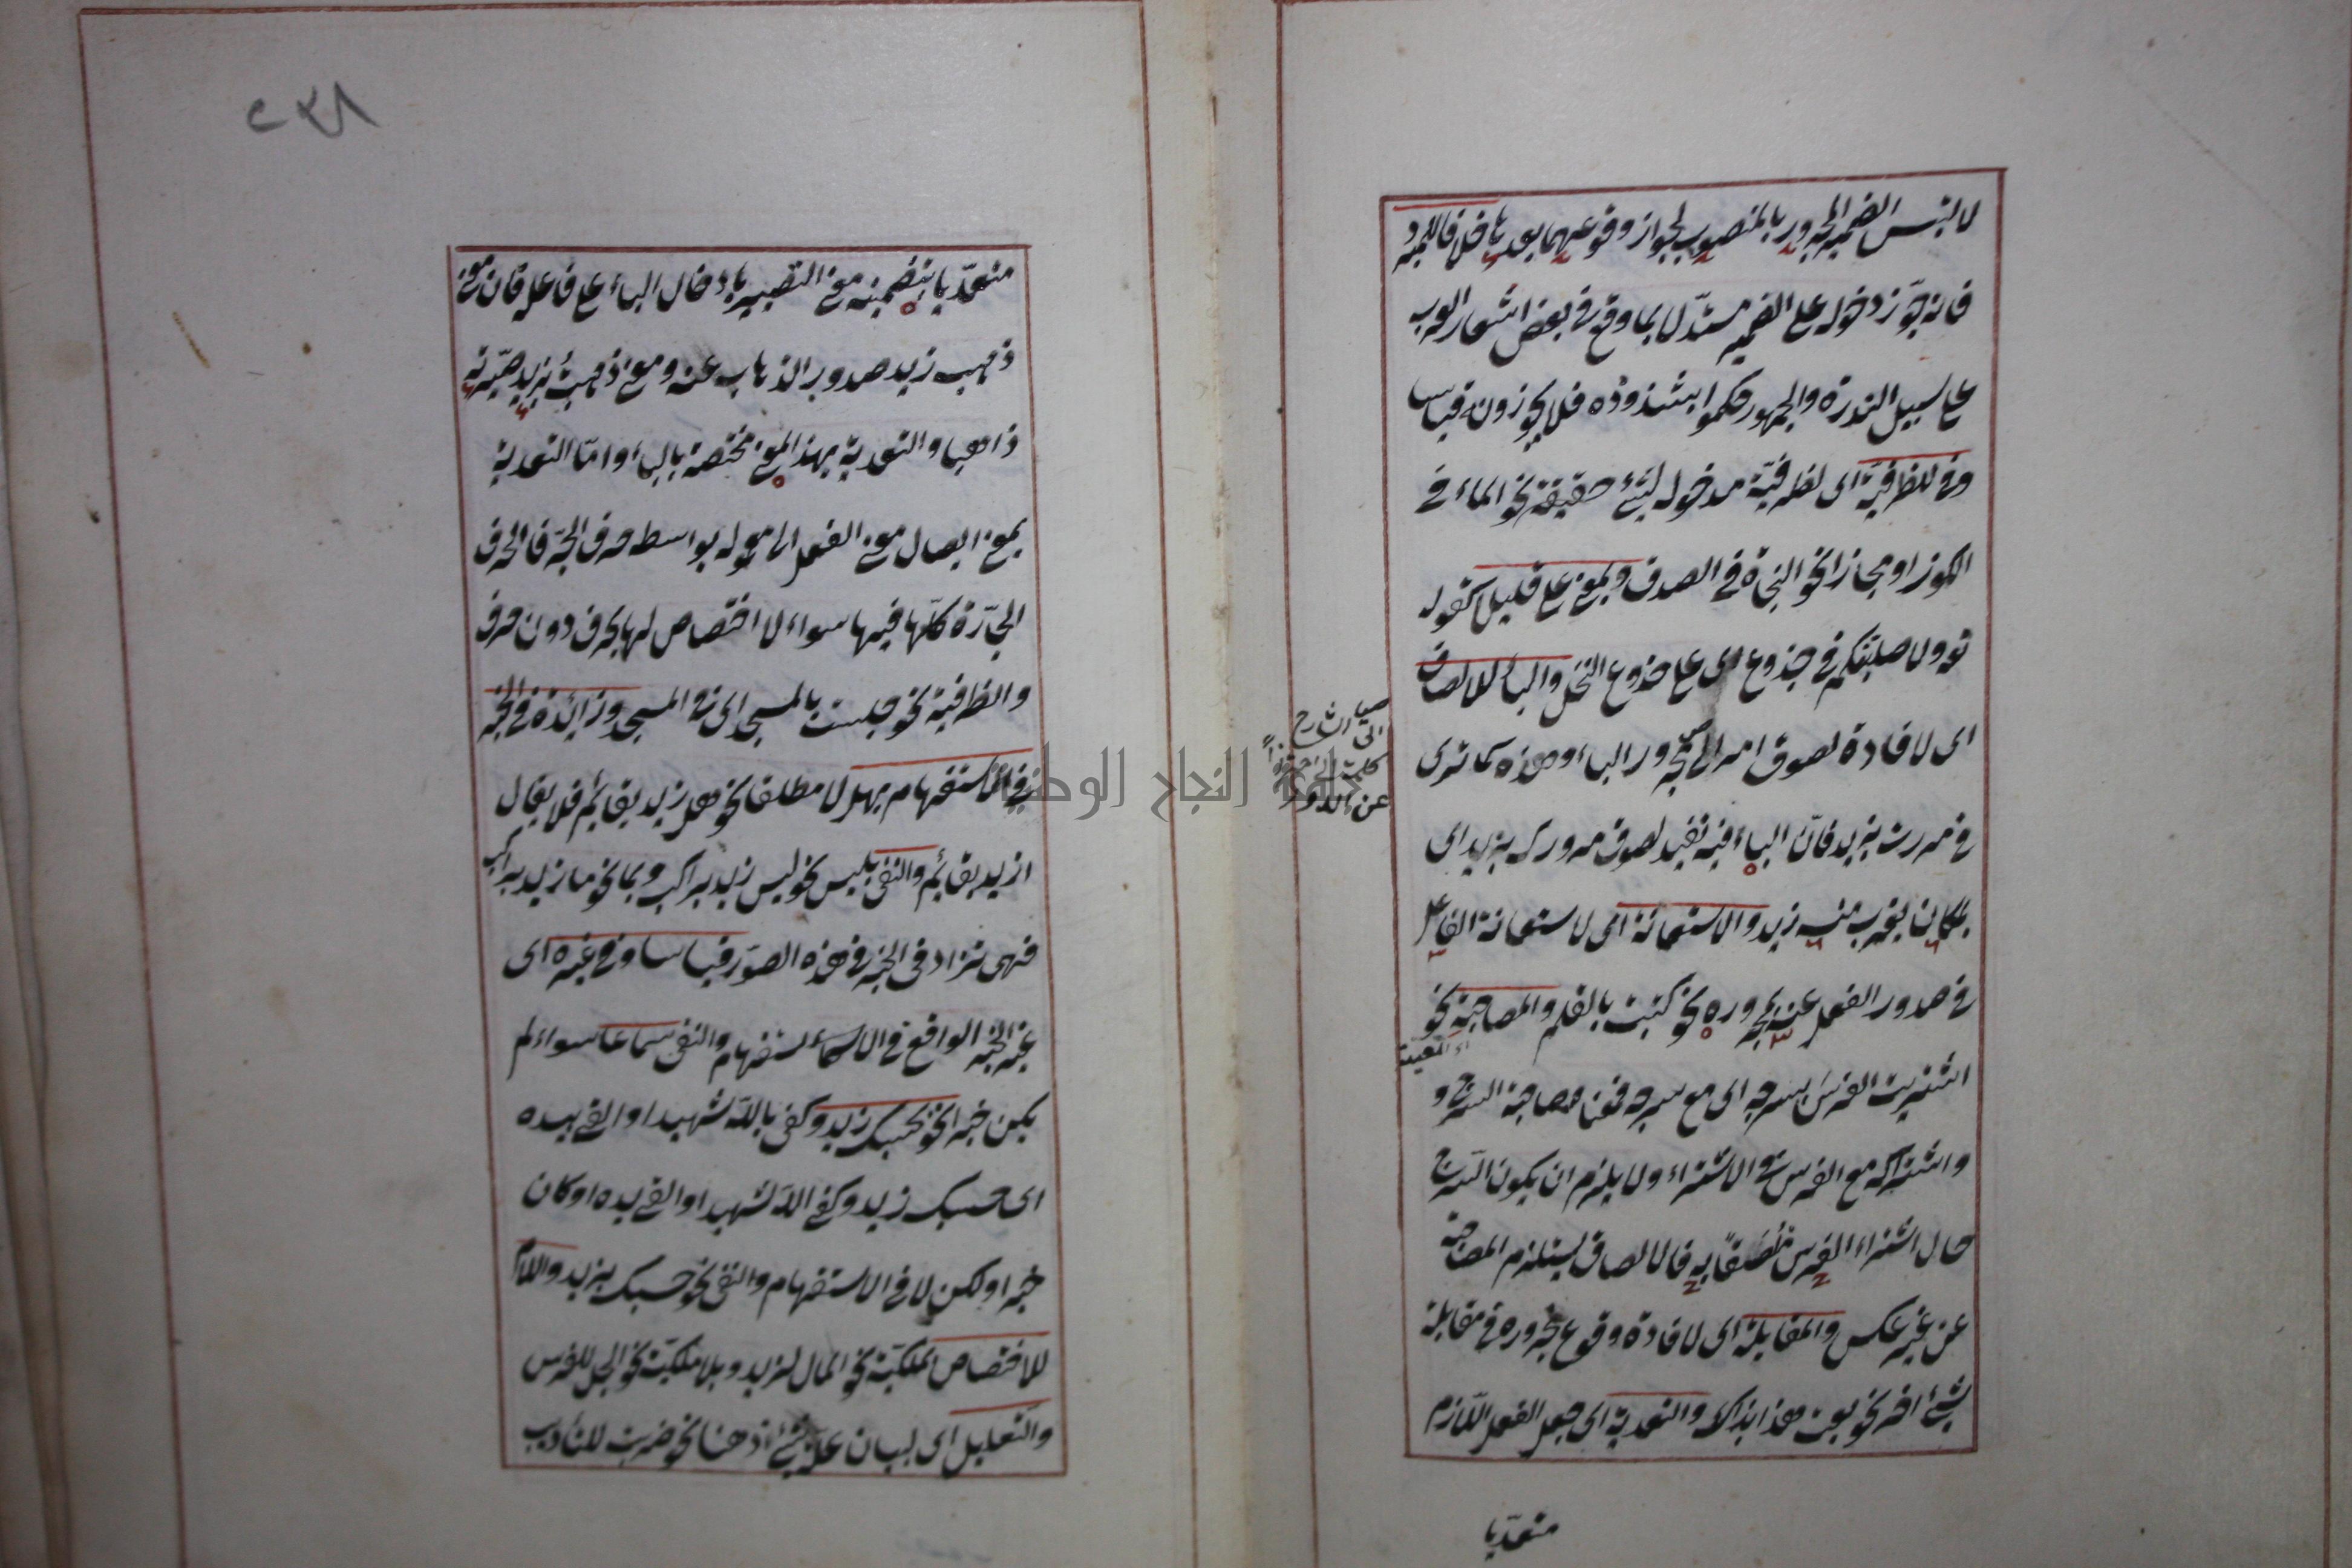 لالتبس الضمير المجرور بالمنصوب لجواز وقوعهما بعدها خلافا للمبرد
فانه جوّز دخوله على الضمير مستدلا بما وقع في بعض اشعار العرب
على سبيل الندرة والجمهور حكموا بشذوذه فلا يجوزونه قياسا
وفي للظرفية اى لظرفيّة مدخوله لشئ حقيقة نحو الماء في
الكوز او مجازا نحو النجاة في الصدق وبمعنى على قليلا كقوله
تع ولاصلبنكم في جذوع اى على جذوع النخل والباء للالصاق
اى لافادة لصوق امر الى مجرور الباء وهذه كما ترى
في مررت بزيد فانّ الباء فيه تفيد لصوق مرورك بزيد اى
بمكان يقرب منه زيد والاستعانة اى لاستعانة الفاعل
في صدور الفعل عنه بمجروره نحو كتبت بالقلم والمصاحبة نحو
اى المعية
اشتريت الفرس بسرجه اى مع سرجه فمعناه مصاحبة السرج و
واشتراكه مع الفرس في الاشتراء ولا يلزم ان يكون السّرج
حال اشتراء الفرس ملصقًا به فالالصاق يستلزم المصاحبة
عن غير عكس والمقابلة اى لافادة وقوع مجروره في مقابلة
شئ آخر نحو بعت هذا بذاك والتعدية اى جعل الفعل اللازم
متعدّيا
٢٤٨
متعدّيا بتضمينه معنى التصيير بادخال الباء على فاعله فان معنى
ذهب زيد صدور الذهاب عنه ومعنى ذهبت بزيد صيّرته
ذاهبا والتعدية بهذا المعنى مختصة بالباء وامّا التعدية
بمعنى ايصال معنى الفعل الى معموله بواسطة حرف الجرّ فالحروف
الجارّة كلّها فيها سواء لا اختصاص لها بحرف دون حرف
والظرفية نحو جلست بالمسجد اى في المسجد وزائدة في الخبر
في الاستفهام بهل لا مطلقا نحو هل زيد بقائم فلا يقال
ازيد بقائم والنفى بليس نحو ليس زيد براكب وبما نحو ما زيد براكب
فهى تزاد في الخبر في هذه الصّور قياسا وفي غيره اى
غير الخبر الواقع في الاستفهام والنفى سماعا سواء لم
يكن خبرا نحو بحسبك زيد وكفى بالله شهيدا والقى بيده
اى حسبك زيد وكفى الله شهيدا والقى يده او كان
خبرا ولكن لا في الاستفهام والنفى نحو حسبك بزيد واللام
للاختصاص بملكيّة نحو المال لزيد وبلا ملكيّة نحو الجل للفرس
والتعليل اى لبيان علّة شئ ذهنا نحو ضربت للتأديب
جامعة النجاح الوطنية